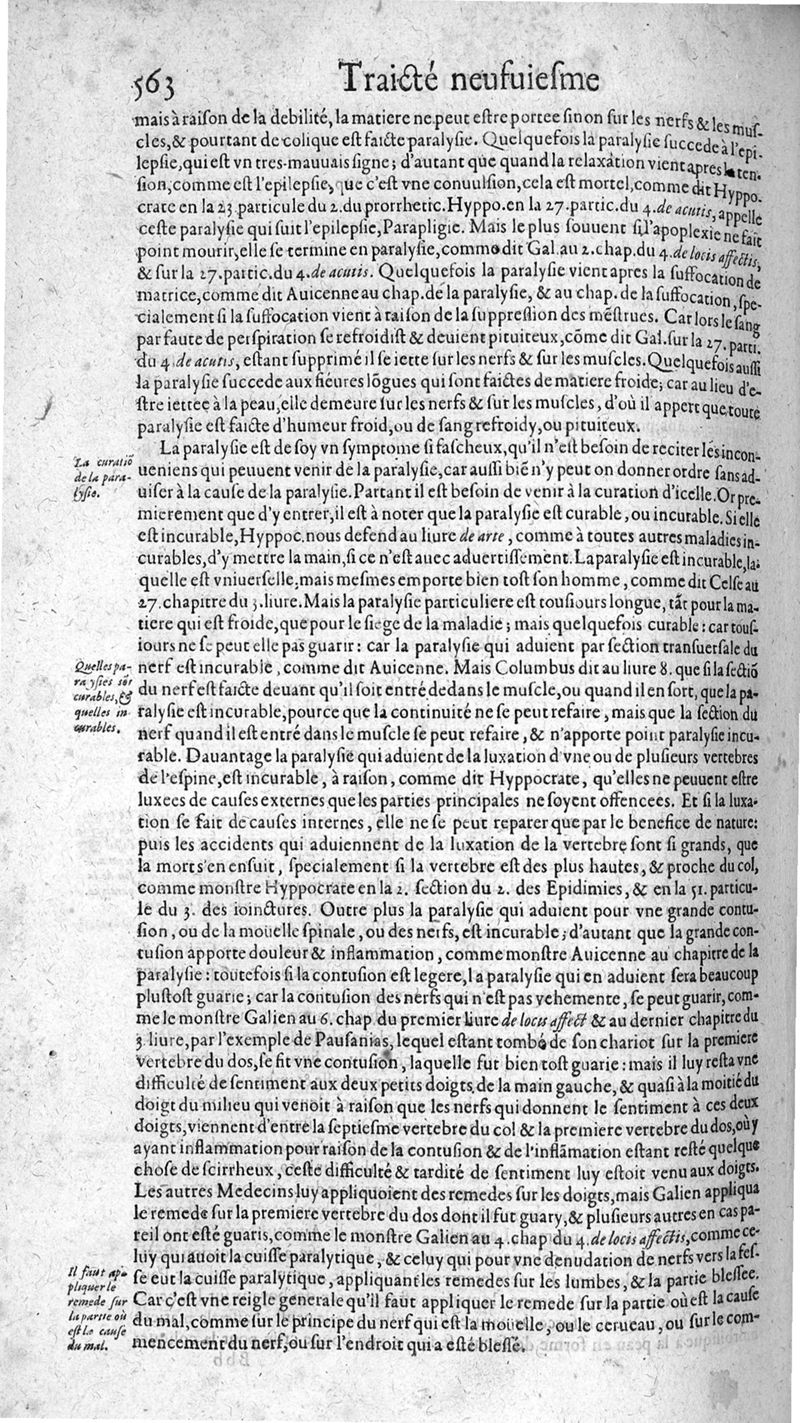 563 Traicté neufuiesme
mais à raison de la debilité, la matiere ne peut estre portee sinon sur les nerfs & les mus-
cles, & pourtant de colique est faicte paralysie. Quelquefois la paralysie succede à l'epi-
lepsie, qui est vn tres-mauuais signe; d'autant que quand la relaxation vient apres la ten-
sion, comme est l'epilepsie, que c'est vne conuulsion, cela est mortel, comme dit Hyppo-
crate en la 23 particule du 2. du prorrhetic. Hyppo. en la 27. partic. du 4. de acutis, appelle
ceste paralysie qui suit l'epilepsie, Parapligie. Mais le plus souuent si l'apoplexie ne fait
point mourir, elle se termine en paralysie, comme dit Gal. au 2. chap. du 4. de locis affectis,
& sur la 27. partic. du 4. de acutis. Quelquefois la paralysie vient apres la suffocation de
matrice, comme dit Auicenne au chap. de la paralysie, & au chap. de la suffocation, spe-
cialement si la suffocation vient à raison de la suppression des mẽstrues. Car lors le sang
par faute de perspiration se refroidist & deuient pituiteux, cõme dit Gal. sur la 27. parti.
du 4. de acutis, estant supprimé il se iette sur les nerfs & sur les muscles. Quelquefois aussi
la paralysie succede aux fiéures lõgues qui sont faictes de matiere froide; car au lieu d'e-
stre iettee à la peau, elle demeure sur les nerfs & sur les muscles, d'où il appert que toute
paralysie est faicte d'humeur froid, ou de sang refroidy, ou pituiteux.
La paralysie est de soy vn symptome si fascheux, qu'il n'est besoin de reciter les incon-
La curatiõ
de la para-
lysie.
ueniens qui peuuent venir de la paralysie, car aussi biẽ n'y peut on donner ordre sans ad-
uiser à la cause de la paralysie. Partant il est besoin de venir à la curation d'icelle. Or pre-
mierement que d'y entrer, il est à noter que la paralysie est curable, ou incurable. Si elle
est incurable, Hyppoc. nous defend au liure de arte, comme à toutes autres maladies in-
curables, d'y mettre la main, si ce n'est auec aduertissement. La paralysie est incurable, la-
quelle est vniuerselle, mais mesmes emporte bien tost son homme, comme dit Celse au
27. chapitre du 3. liure. Mais la paralysie particuliere est tousiours longue, tãt pour la ma-
tiere qui est froide, que pour le siege de la maladie; mais quelquefois curable: car tous-
iours ne se peut elle pas guarir: car la paralysie qui aduient par section transuersale du
Quelles pa-
ralysies sõt
curables, &
quelles in-
curables.
nerf est incurable, comme dit Auicenne. Mais Columbus dit au liure 8. que si la sectiõ
du nerf est faicte deuant qu'il soit entré dedans le muscle, ou quand il en sort, que la pa-
ralysie est incurable, pource que la continuité ne se peut refaire, mais que la section du
nerf quand il est entré dans le muscle se peut refaire, & n'apporte point paralysie incu-
rable. Dauantage la paralysie qui aduient de la luxation d'vne ou de plusieurs vertebres
de l'espine, est incurable, à raison, comme dit Hyppocrate, qu'elles ne peuuent estre
luxees de causes externes que les parties principales ne soyent offencees. Et si la luxa-
tion se fait de causes internes, elle ne se peut reparer que par le benefice de nature:
puis les accidents qui aduiennent de la luxation de la vertebre sont si grands, que
la mort s'en ensuit, specialement si la vertebre est des plus hautes, & proche du col,
comme monstre Hyppocrate en la 2. section du 2. des Epidimies, & en la 51. particu-
le du 3. des ioinctures. Outre plus la paralysie qui aduient pour vne grande contu-
sion, ou de la moüelle spinale, ou des nerfs, est incurable; d'autant que la grande con-
tusion apporte douleur & inflammation, comme monstre Auicenne au chapitre de la
paralysie: toutefois si la contusion est legere, la paralysie qui en aduient sera beaucoup
plustost guarie; car la contusion des nerfs qui n'est pas vehemente, se peut guarir, com-
me le monstre Galien au 6. chap du premier liure de locis affect & au dernier chapitre du
3. liure, par l'exemple de Pausanias, lequel estant tombé de son chariot sur la premiere
vertebre du dos, se fit vne contusion, laquelle fut bien tost guarie: mais il luy resta vne
difficulté de sentiment aux deux petits doigts de la main gauche, & quasi à la moitié du
doigt du milieu qui venoit à raison que les nerfs qui donnent le sentiment à ces deux
doigts, viennent d'entre la septiesme vertebre du col & la premiere vertebre du dos, où y
ayant inflammation pour raison de la contusion & de l'inflãmation estant resté quelque
chose de scirrheux, ceste difficulté & tardité de sentiment luy estoit venu aux doigts.
Les autres Medecins luy appliquoient des remedes sur les doigts, mais Galien appliqua
le remede sur la premiere vertebre du dos dont il fut guary, & plusieurs autres en cas pa-
reil ont esté guaris, comme le monstre Galien au 4. chap. du 4. de locis affectis, comme ce-
luy qui auoit la cuisse paralytique, & celuy qui pour vne denudation de nerfs vers la fes-
Il faut ap-
pliquer le
remede sur
la partie où
est la cause
du mal.
se eut la cuisse paralytique, appliquant les remedes sur les lumbes, & la partie blessee.
Car c'est vne reigle generale qu'il faut appliquer le remede sur la partie où est la cause
du mal, comme sur le principe du nerf qui est la moüelle, ou le cerueau, ou sur le com-
mencement du nerf, ou sur l'endroit qui a esté blessé.